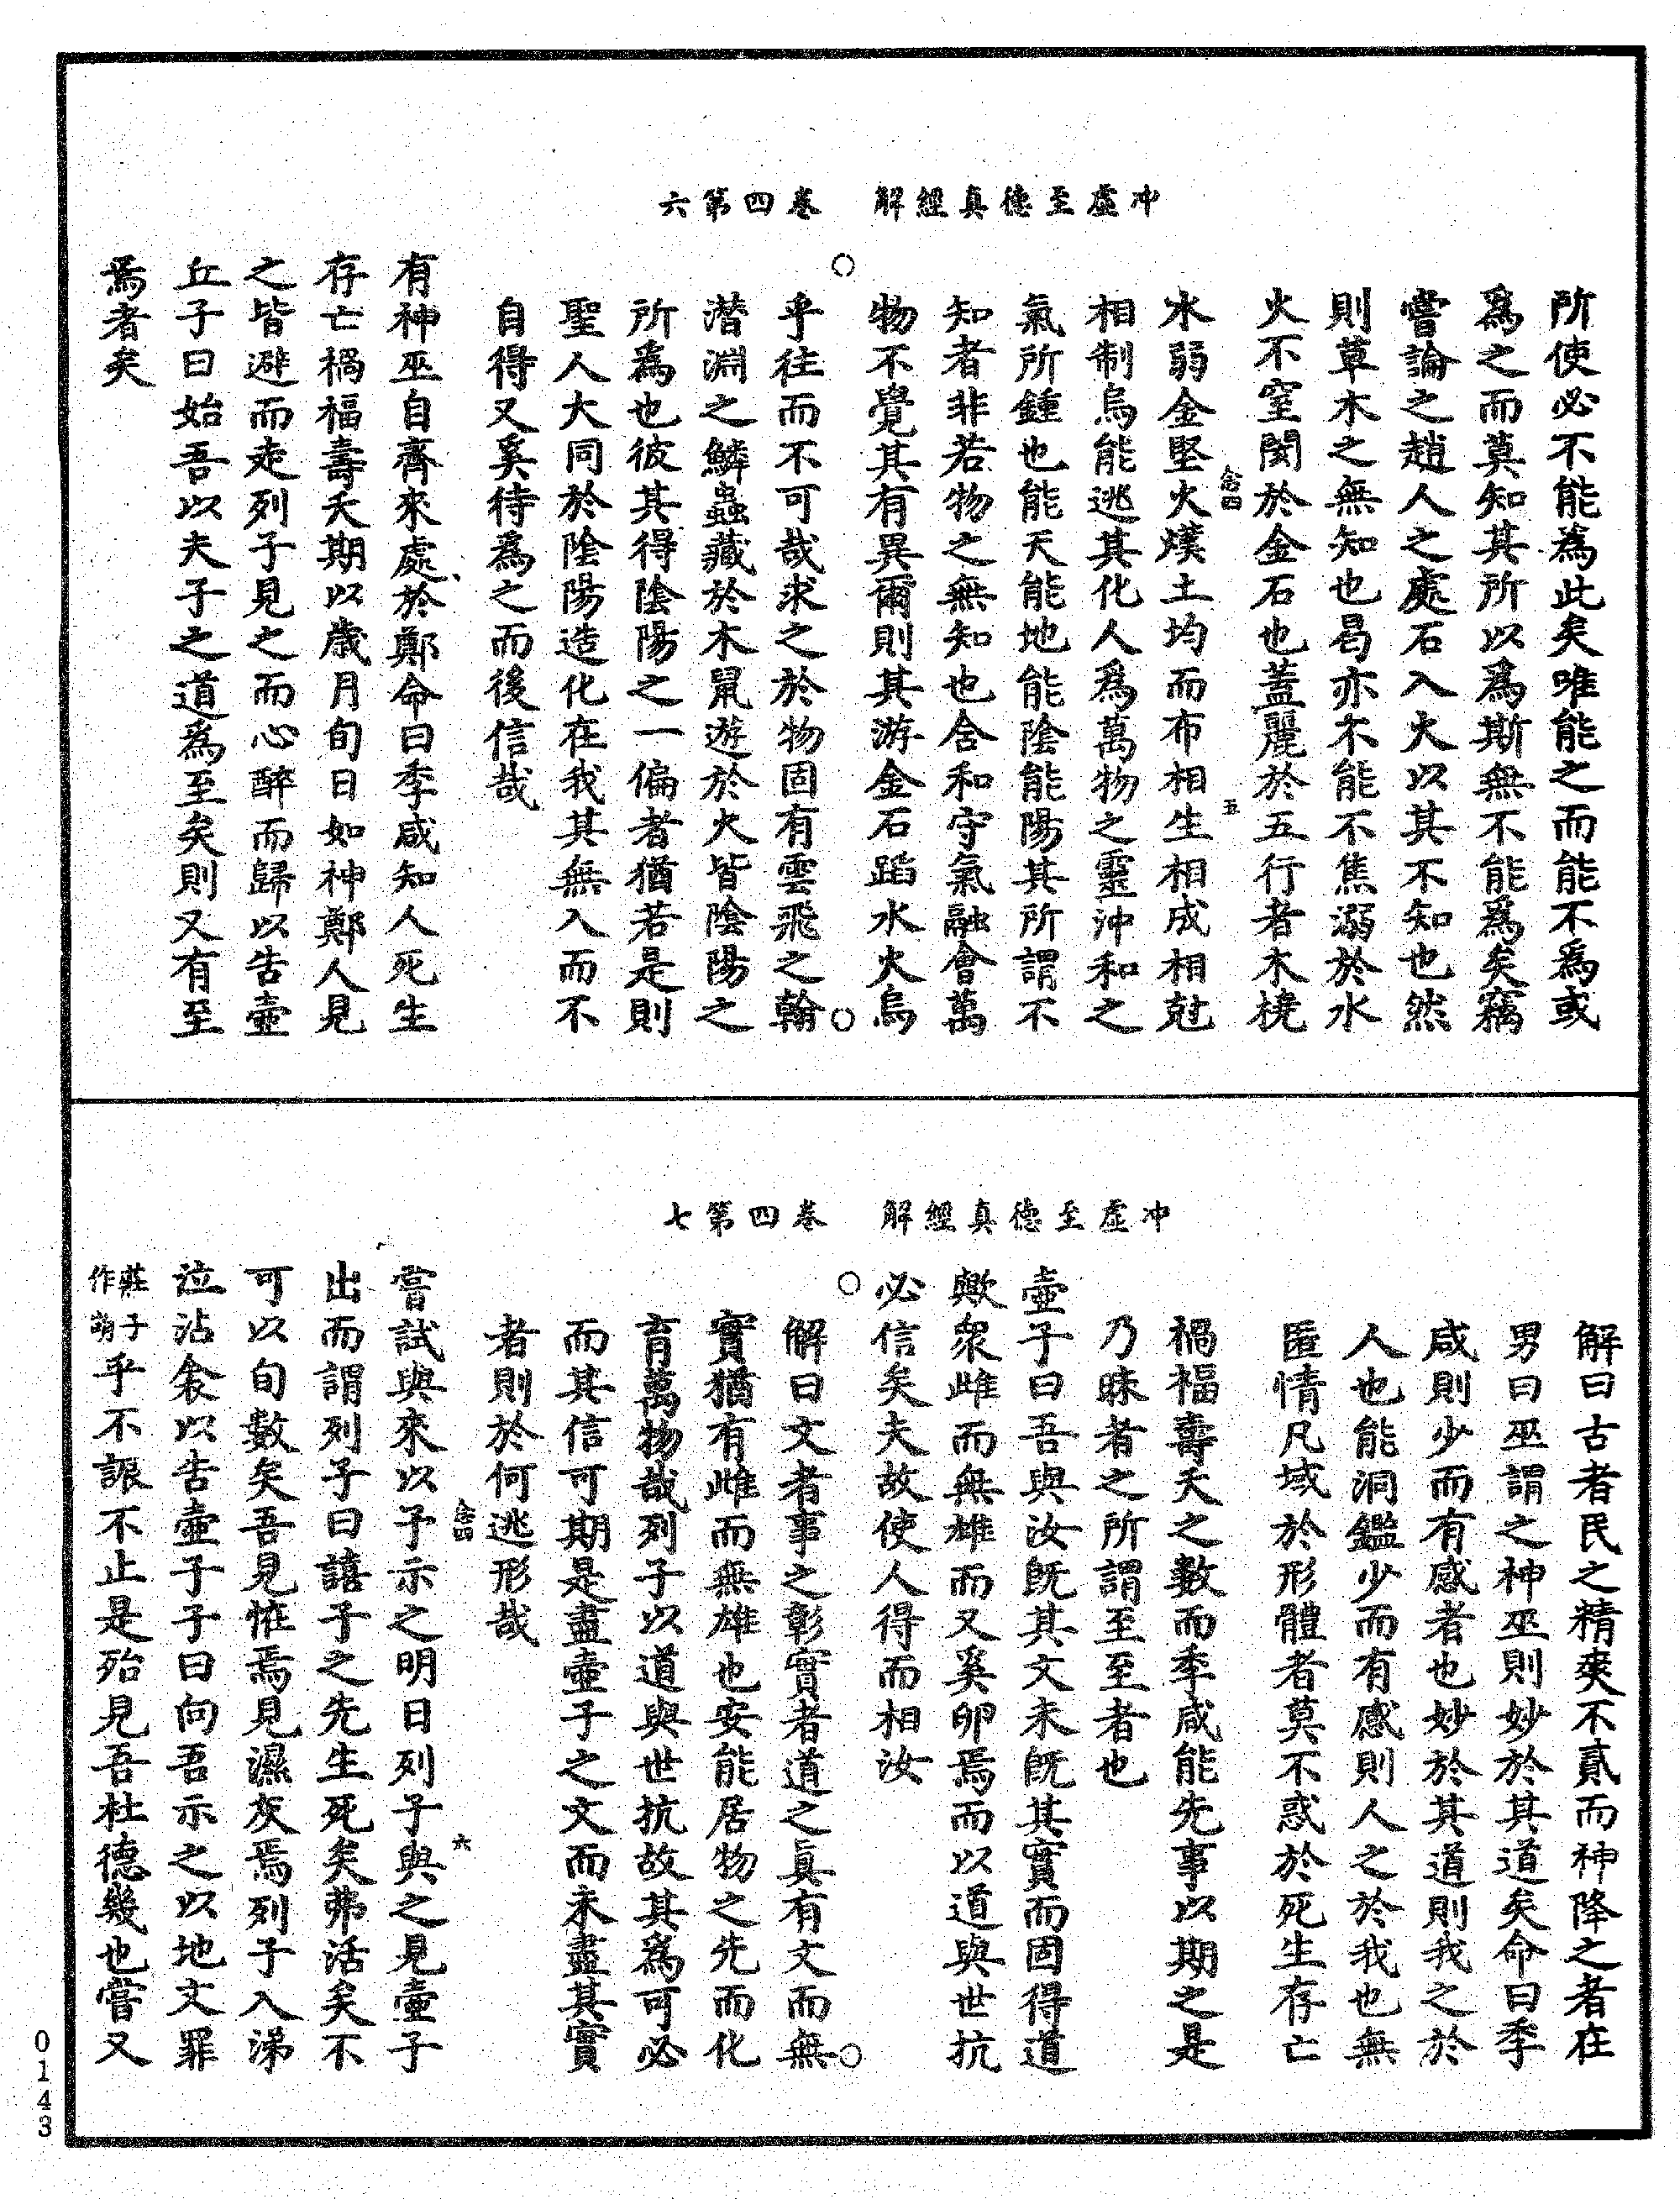 冲虛至德真經解　卷四第六
所使必不能為此矣唯能之而能不為或
爲之而莫知其所以爲斯無不能爲矣竊
嘗論之趙人之處石入火以其不知也然
則草木之無知也曷亦不能不焦溺於水
火不窒閡於金石也蓋麗於五行者木橈
念四　五
水弱金堅火熯土均而布相生相成相尅
相制烏能逃其化人爲萬物之靈沖和之
氣所鍾也能天能地能陰能陽其所謂不
知者非若物之無知也含和守氣融會萬
物不覺其有異爾則其游金石蹈水火烏
乎往而不可哉求之於物固有雲飛之翰
潛淵之鱗蟲藏於木鼠遊於火皆陰陽之
所爲也彼其得陰陽之一偏者猶若是則
聖人大同於陰陽造化在我其無入而不
自得又奚待爲之而後信哉
有神巫自齊來處於鄭命曰季咸知人死生
存亡禍福壽夭期以歲月旬日如神鄭人見
之皆避而走列子見之而心醉而歸以告壺
丘子曰始吾以夫子之道爲至矣則又有至
焉者矣
冲虛至德真經解　卷四第七
解曰古者民之精爽不貳而神降之者在
男曰巫謂之神巫則妙於其道矣命曰季
咸則少而有感者也妙於其道則我之於
人也能洞鑑少而有感則人之於我也無
匿情凡域於形體者莫不惑於死生存亡
禍福壽夭之數而季咸能先事以期之是
乃昧者之所謂至至者也
壺子曰吾與汝旣其文未旣其實而固得道
歟衆雌而無雄而又奚卵焉而以道與世抗
必信矣夫故使人得而相汝
解曰文者事之彰實者道之眞有文而無
實猶有雌而無雄也安能居物之先而化
育萬物哉列子以道與世抗故其爲可必
而其信可期是盡壺子之文而未盡其實
者則於何逃形哉
念四　六
嘗試與來以予示之明日列子與之見壺子
出而謂列子曰譆子之先生死矣弗活矣不
可以旬數矣吾見怪焉見濕灰焉列子入涕
泣沾衾以告壺子子曰向吾示之以地文罪
莊子作萌乎不誫不止是殆見吾杜德幾也嘗又
0143